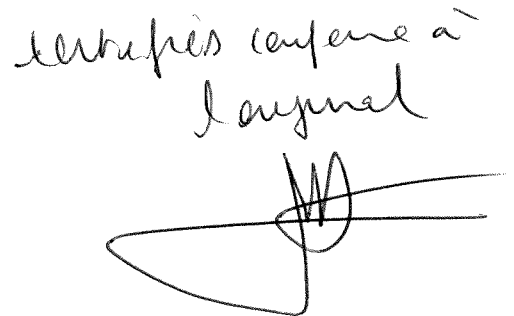 certifiés conforme à
l'original